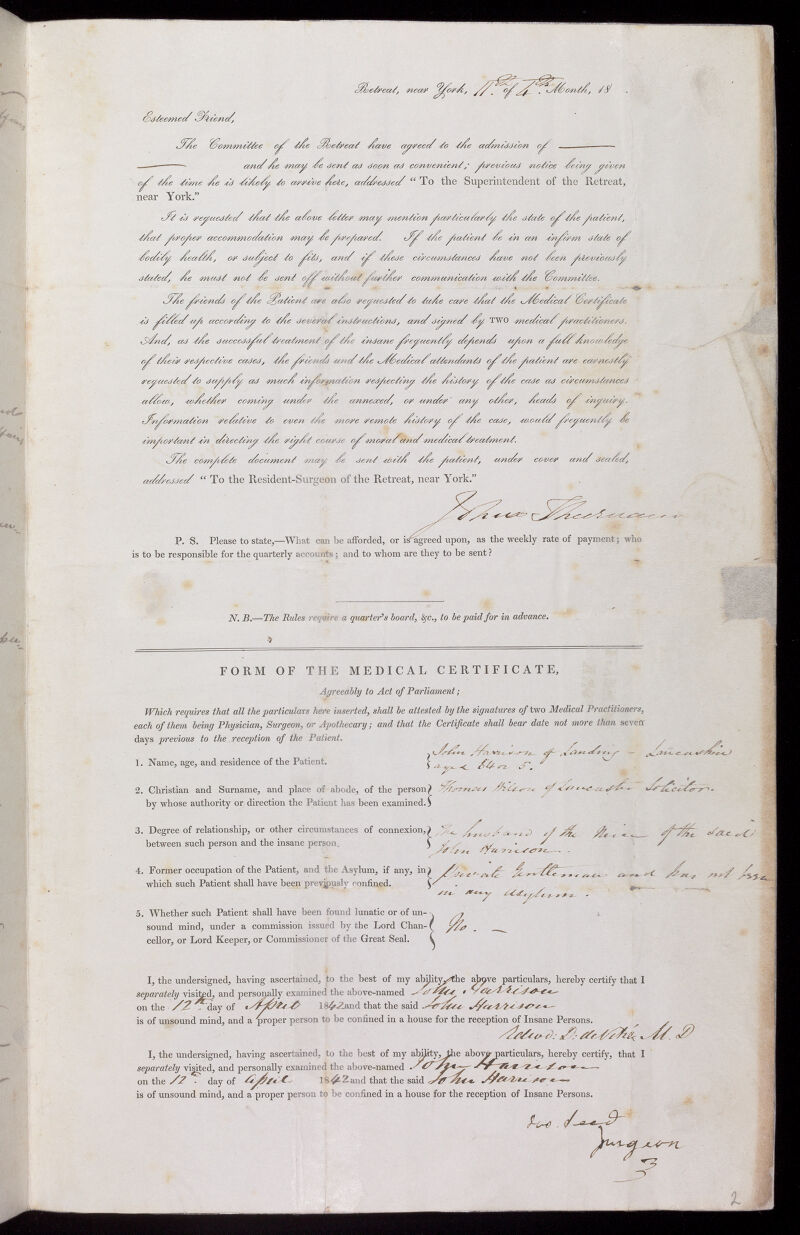 Retreat, near York, 11th of 4th Month, 18 .
Esteemed Friend,
The Committee of the Retreat have agreed to the admission of ———
——— and he may be sent as soon as convenient; previous notice being given
of the time he is likely to arrive here, addressed "To the Superintendent of the Retreat,
near York."
It is requested that the above letter may mention particularly the state of the patient,
that proper accommodation may be prepared. If the patient be in an infirm state of
bodily health, or subject to fits, and if these circumstances have not been previously
stated, he must not be sent off without further communication with the Committee.
The friends of the Patient are also requested to take care that the Medical Certificate
is filled up according to the several instructions, and signed by TWO medical practitioners.
And, as the successful treatment of the insane frequently depends upon a full knowledge
of their respective cases, the friends and the Medical attendants of the patient are earnestly
requested to supply as much information respecting the history of the case as circumstances
allow, whether coming under the annexed, or under any other, heads of inquiry.
Information relative to even the more remote history of the case, would frequently be
important in directing the right course of moral and medical treatment.
The complete document may be sent with the patient, under cover and sealed,
addressed "To the Resident-Surgeon of the Retreat, near York."
John Thurnam
P. S. Please to state,—What can be afforded, or is agreed upon, as the weekly rate of payment; who
is to be responsible for the quarterly accounts; and to whom are they to be sent?
N. B.—The Rules require a quarter's board, &c., to be paid for in advance.
FORM OF THE MEDICAL CERTIFICATE,
Agreeably to Act of Parliament;
Which requires that all the particulars here inserted, shall be attested by the signatures of two Medical Practitioners,
each of them being Physician, Surgeon, or Apothecary; and that the Certificate shall bear date not more than seven
days previous to the reception of the Patient.
1. Name, age, and residence of the Patient.
John Harrison of Landing - Lancashire
aged 54 or 5.
2. Christian and Surname, and place of abode, of the person
by whose authority or direction the Patient has been examined.
Thomas Wilson of Lancaster Solicitor.
3. Degree of relationship, or other circumstances of connexion,
between such person and the insane person.
The husband of the Niece of the said
John Harrison.
4. Former occupation of the Patient, and the Asylum, if any, in
which such Patient shall have been previously confined.
Private Gentleman and has not been
in any asylum.
5. Whether such Patient shall have been found lunatic or of un-
sound mind, under a commission issued by the Lord Chan-
cellor, or Lord Keeper, or Commissioner of the Great Seal.
No. —
I, the undersigned, having ascertained, to the best of my ability, the above particulars, hereby certify that I
separately visited, and personally examined the above-named John Harrison
on the 12th day of April 1842 and that the said John Harrison
is of unsound mind, and a proper person to be confined in a house for the reception of Insane Persons.
Edwd: D: deVitré M.D
I, the undersigned, having ascertained, to the best of my ability, the above particulars, hereby certify, that I
separately visited, and personally examined the above-named John Harrison
on the 12th day of April 1842 and that the said John Harrison
is of unsound mind, and a proper person to be confined in a house for the reception of Insane Persons.
Surgeon
3
2